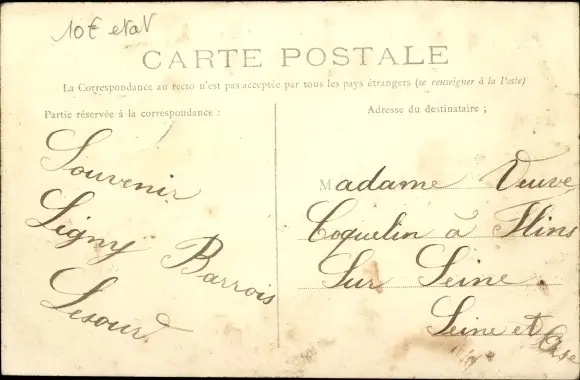 10€ etat
CARTE POSTALE
La Correspondance au recto n'est pas acceptée par tous les pays étrangers (se renseigner à la Poste)
Partie réservée à la correspondance :
Adresse du destinataire ;
Souvenir
Ligny Barrois
Lesourd
Madame Veuve
Coquelin à Flins
Sur Seine.
Seine et Oise